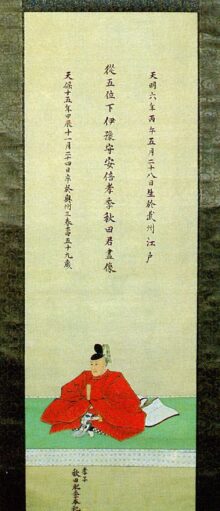 天明六年丙午五月二十八日生於武州江戸
從五位下伊豫守安倍孝季秋田君畫像
天保十五年甲辰十一月二十四日卒於奥州三春壽五十九歳
孝子
秋田